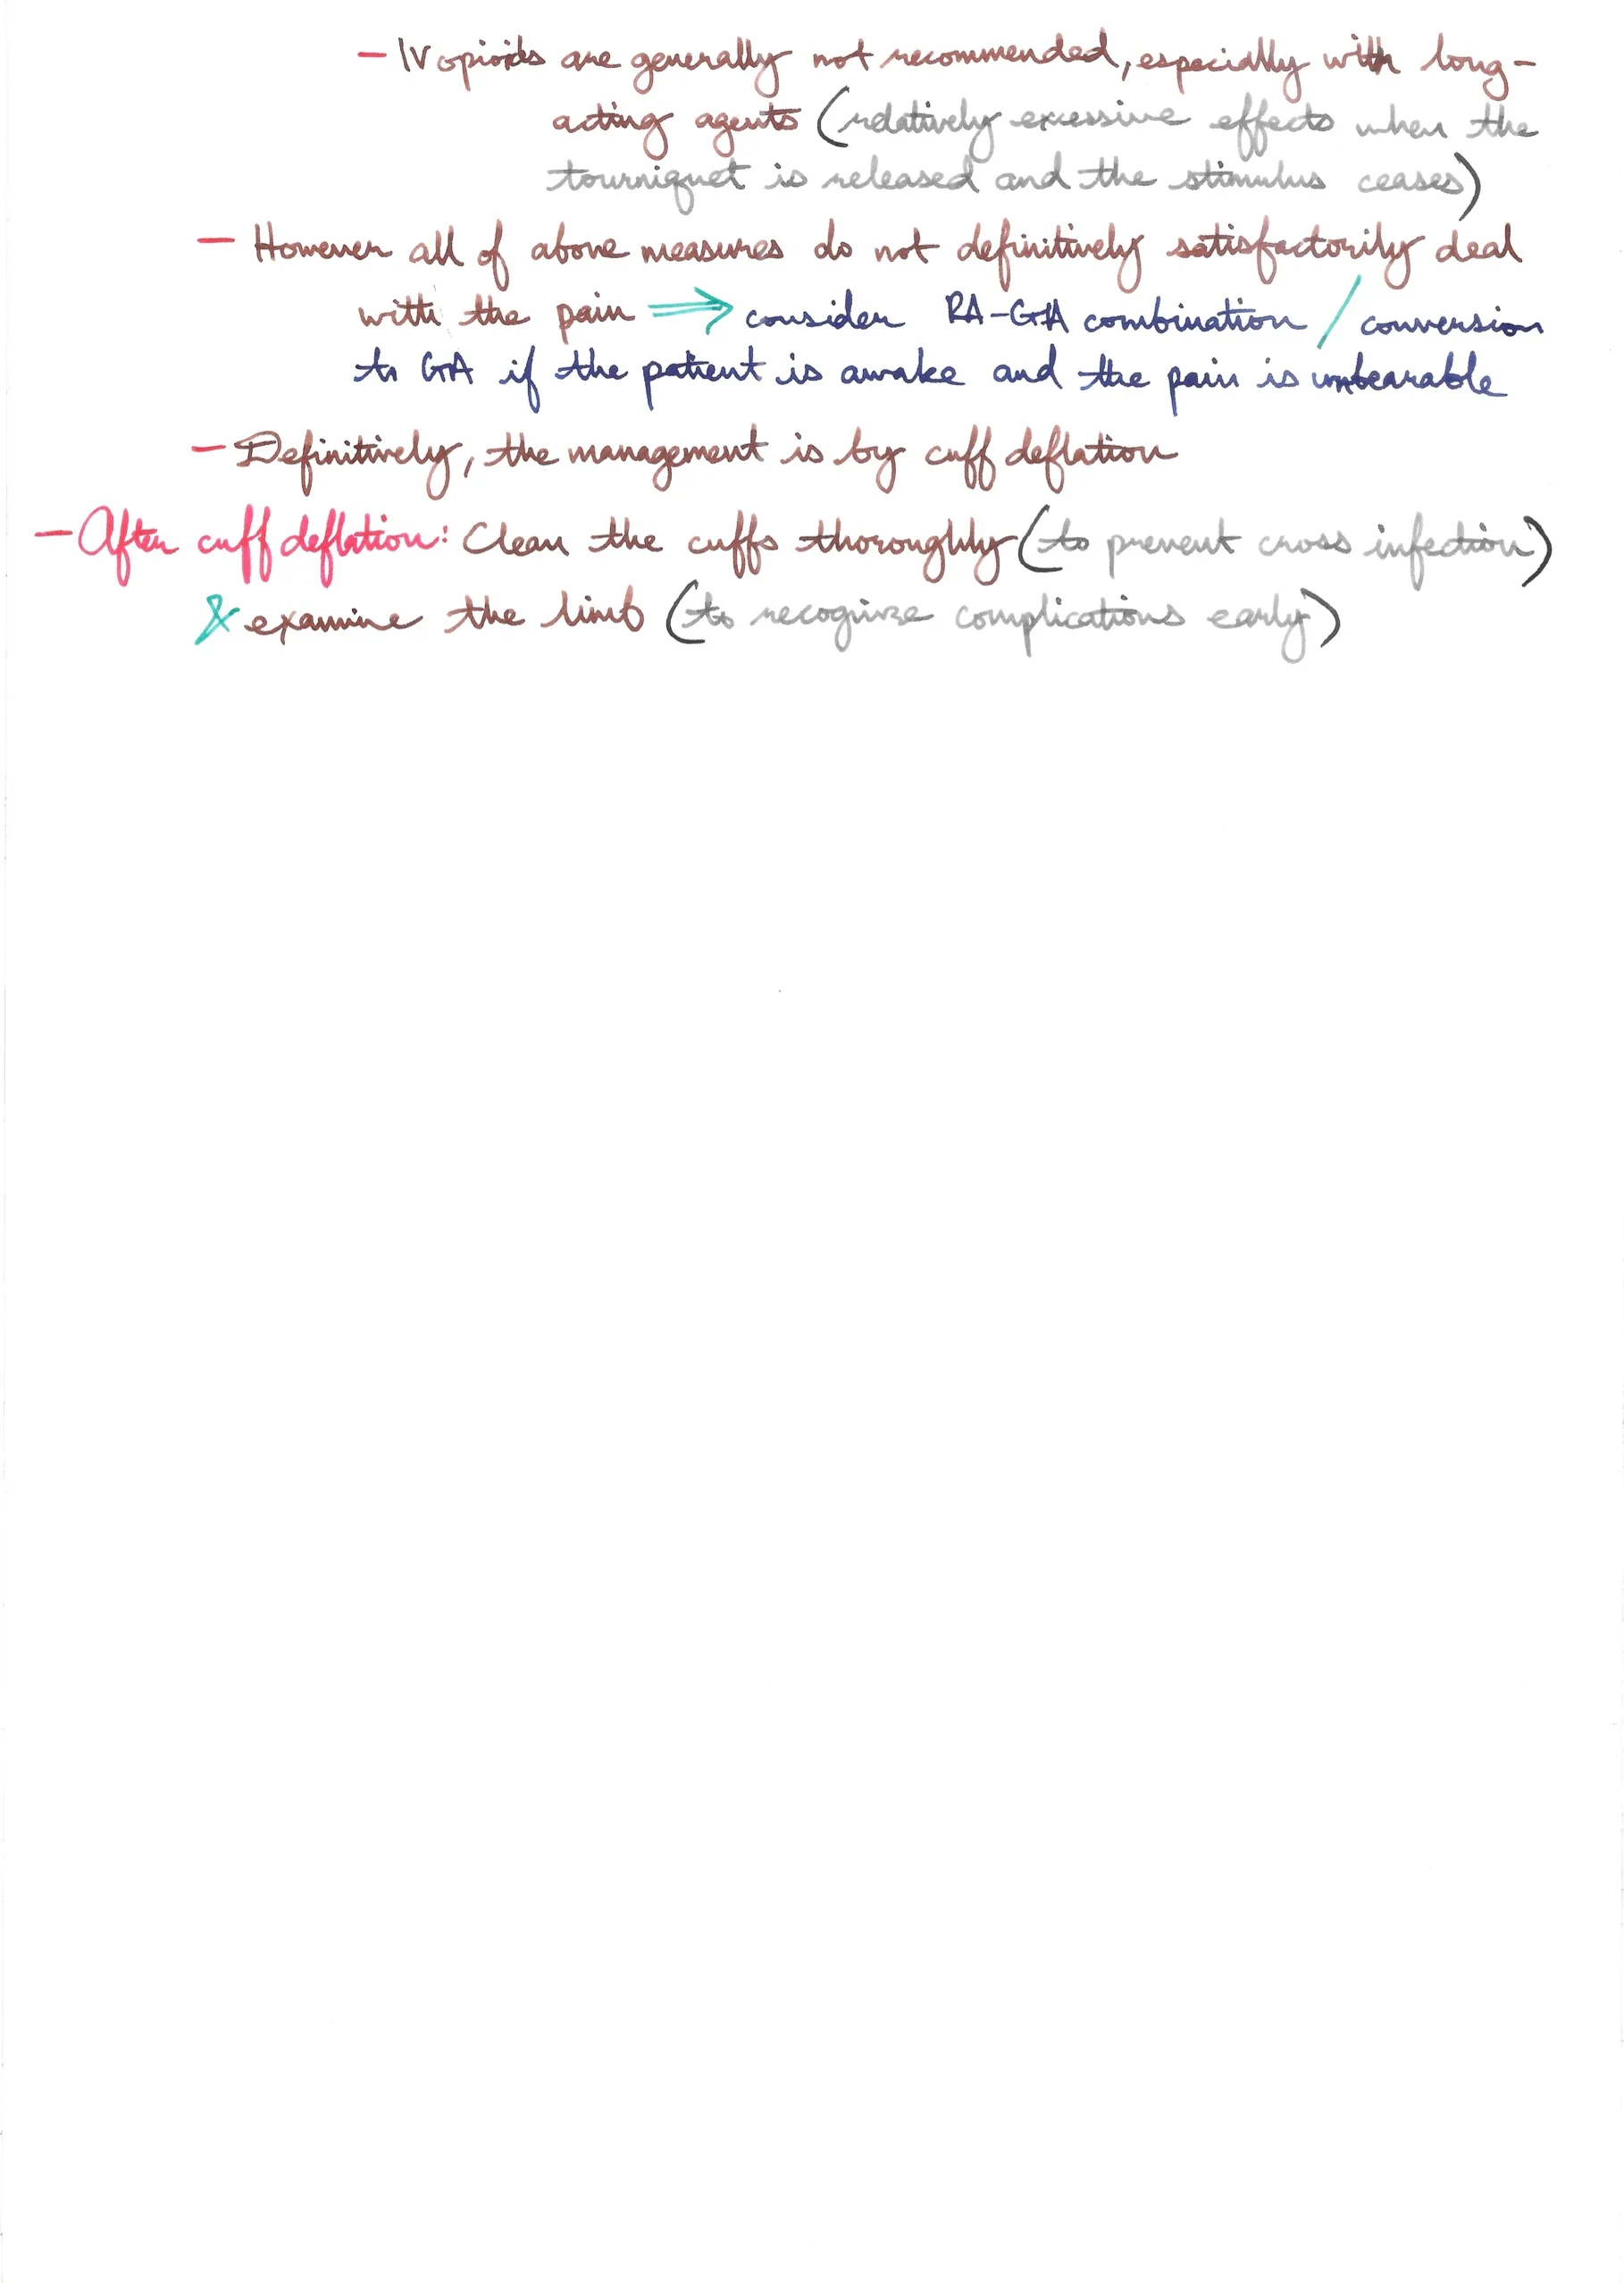 – IV opioids are generally not recommended, especially with long-
acting agents (relatively excessive effects when the
tourniquet is released and the stimulus ceases)
– However all of above measures do not definitively satisfactorily deal
with the pain ⟹ consider RA-GA combination / conversion
to GA if the patient is awake and the pain is unbearable
– Definitively, the management is by cuff deflation
– After cuff deflation: Clean the cuffs thoroughly (to prevent cross infection)
& examine the limb (to recognize complications early)